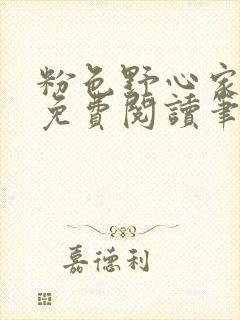 粉色野心家
免費閱讀筆
嘉德利